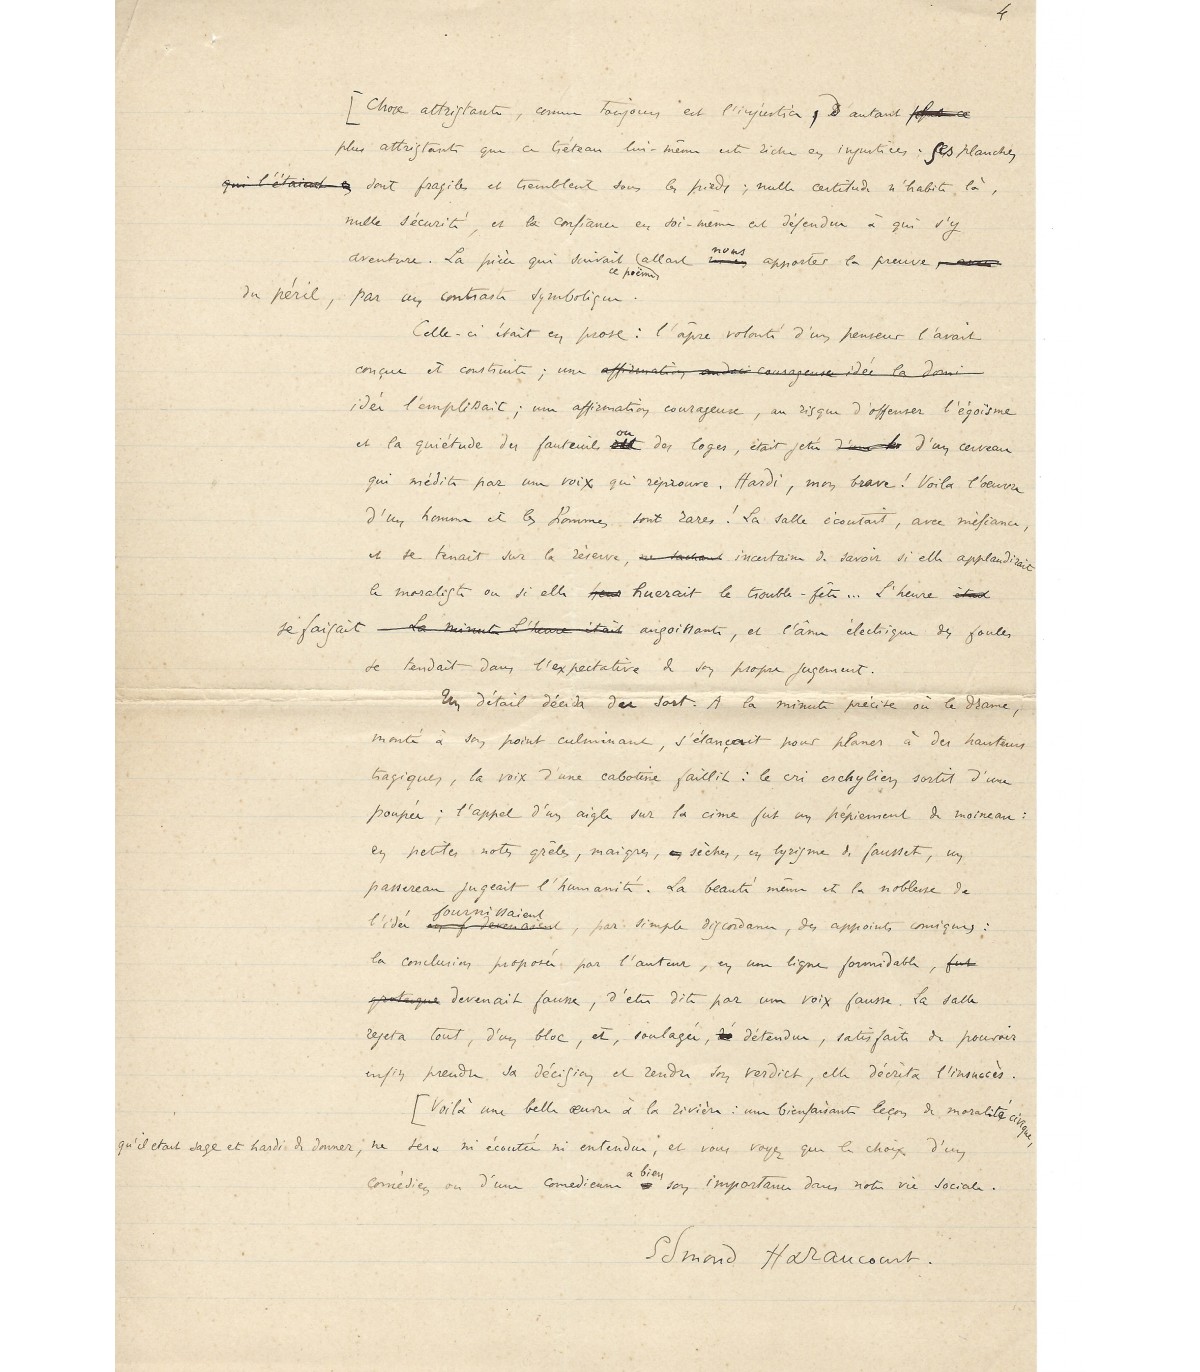 4
[Chose attristante, comme toujours est l'injustice, D'autant plus ce
plus attristante que ce tréteau lui-même est riche en injustices : ses planches
qui l'étaient en sont fragiles et tremblent sous les pieds ; nulle certitude n'habite là,
nulle sécurité, et la confiance en soi-même est défendue à qui s'y
aventure. La pièce qui suivait ce poème allait nous apporter la preuve, avec
du péril, par un contraste symbolique.
Celle-ci était en prose : l'âpre volonté d'un penseur l'avait
conçue et construite ; une affirmation audaci courageuse idée la domi
idée l'emplissait ; une affirmation courageuse, au risque d'offenser l'égoïsme
et la quiétude des fauteuils ou des loges, était jetée d'une d'un cerveau
qui médite par une voix qui réprouve. Hardi, mon brave ! Voilà l'œuvre
d'un homme et les hommes sont rares ! La salle écoutait, avec méfiance,
et se tenait sur la réserve, ne sachant incertaine de savoir si elle applaudirait
le moraliste ou si elle huerait le trouble-fête... L'heure était
se faisait La minute L'heure était angoissante, et l'âme électrique des foules
se tendait dans l'expectative de son propre jugement.
Un détail décida du sort. A la minute précise où le drame,
monté à son point culminant, s'élançait pour planer à des hauteurs
tragiques, la voix d'une cabotine faillit : le cri eschylien sortit d'une
poupée ; l'appel d'un aigle sur la cime fut un pépiement de moineau :
en petites notes grêles, maigres, sèches, en lyrisme de fausset, un
passereau jugeait l'humanité. La beauté même et la noblesse de
l'idée fournissaient devenaient, par simple discordance, des appoints comiques :
la conclusion proposée par l'auteur, en une ligne formidable, fut
grotesque devenait fausse, d'être dite par une voix fausse. La salle
rejeta tout, d'un bloc, et, soulagée, détendue, satisfaite de pouvoir
enfin prendre sa décision et rendre son verdict, elle décréta l'insuccès.
[Voilà une belle œuvre à la rivière : une bienfaisante leçon de moralité civique,
qu'il était sage et hardi de donner, ne sera ni écoutée ni entendue ; et vous voyez que le choix d'un
comédien ou d'une comédienne a bien son importance dans notre vie sociale.
Edmond Haraucourt.